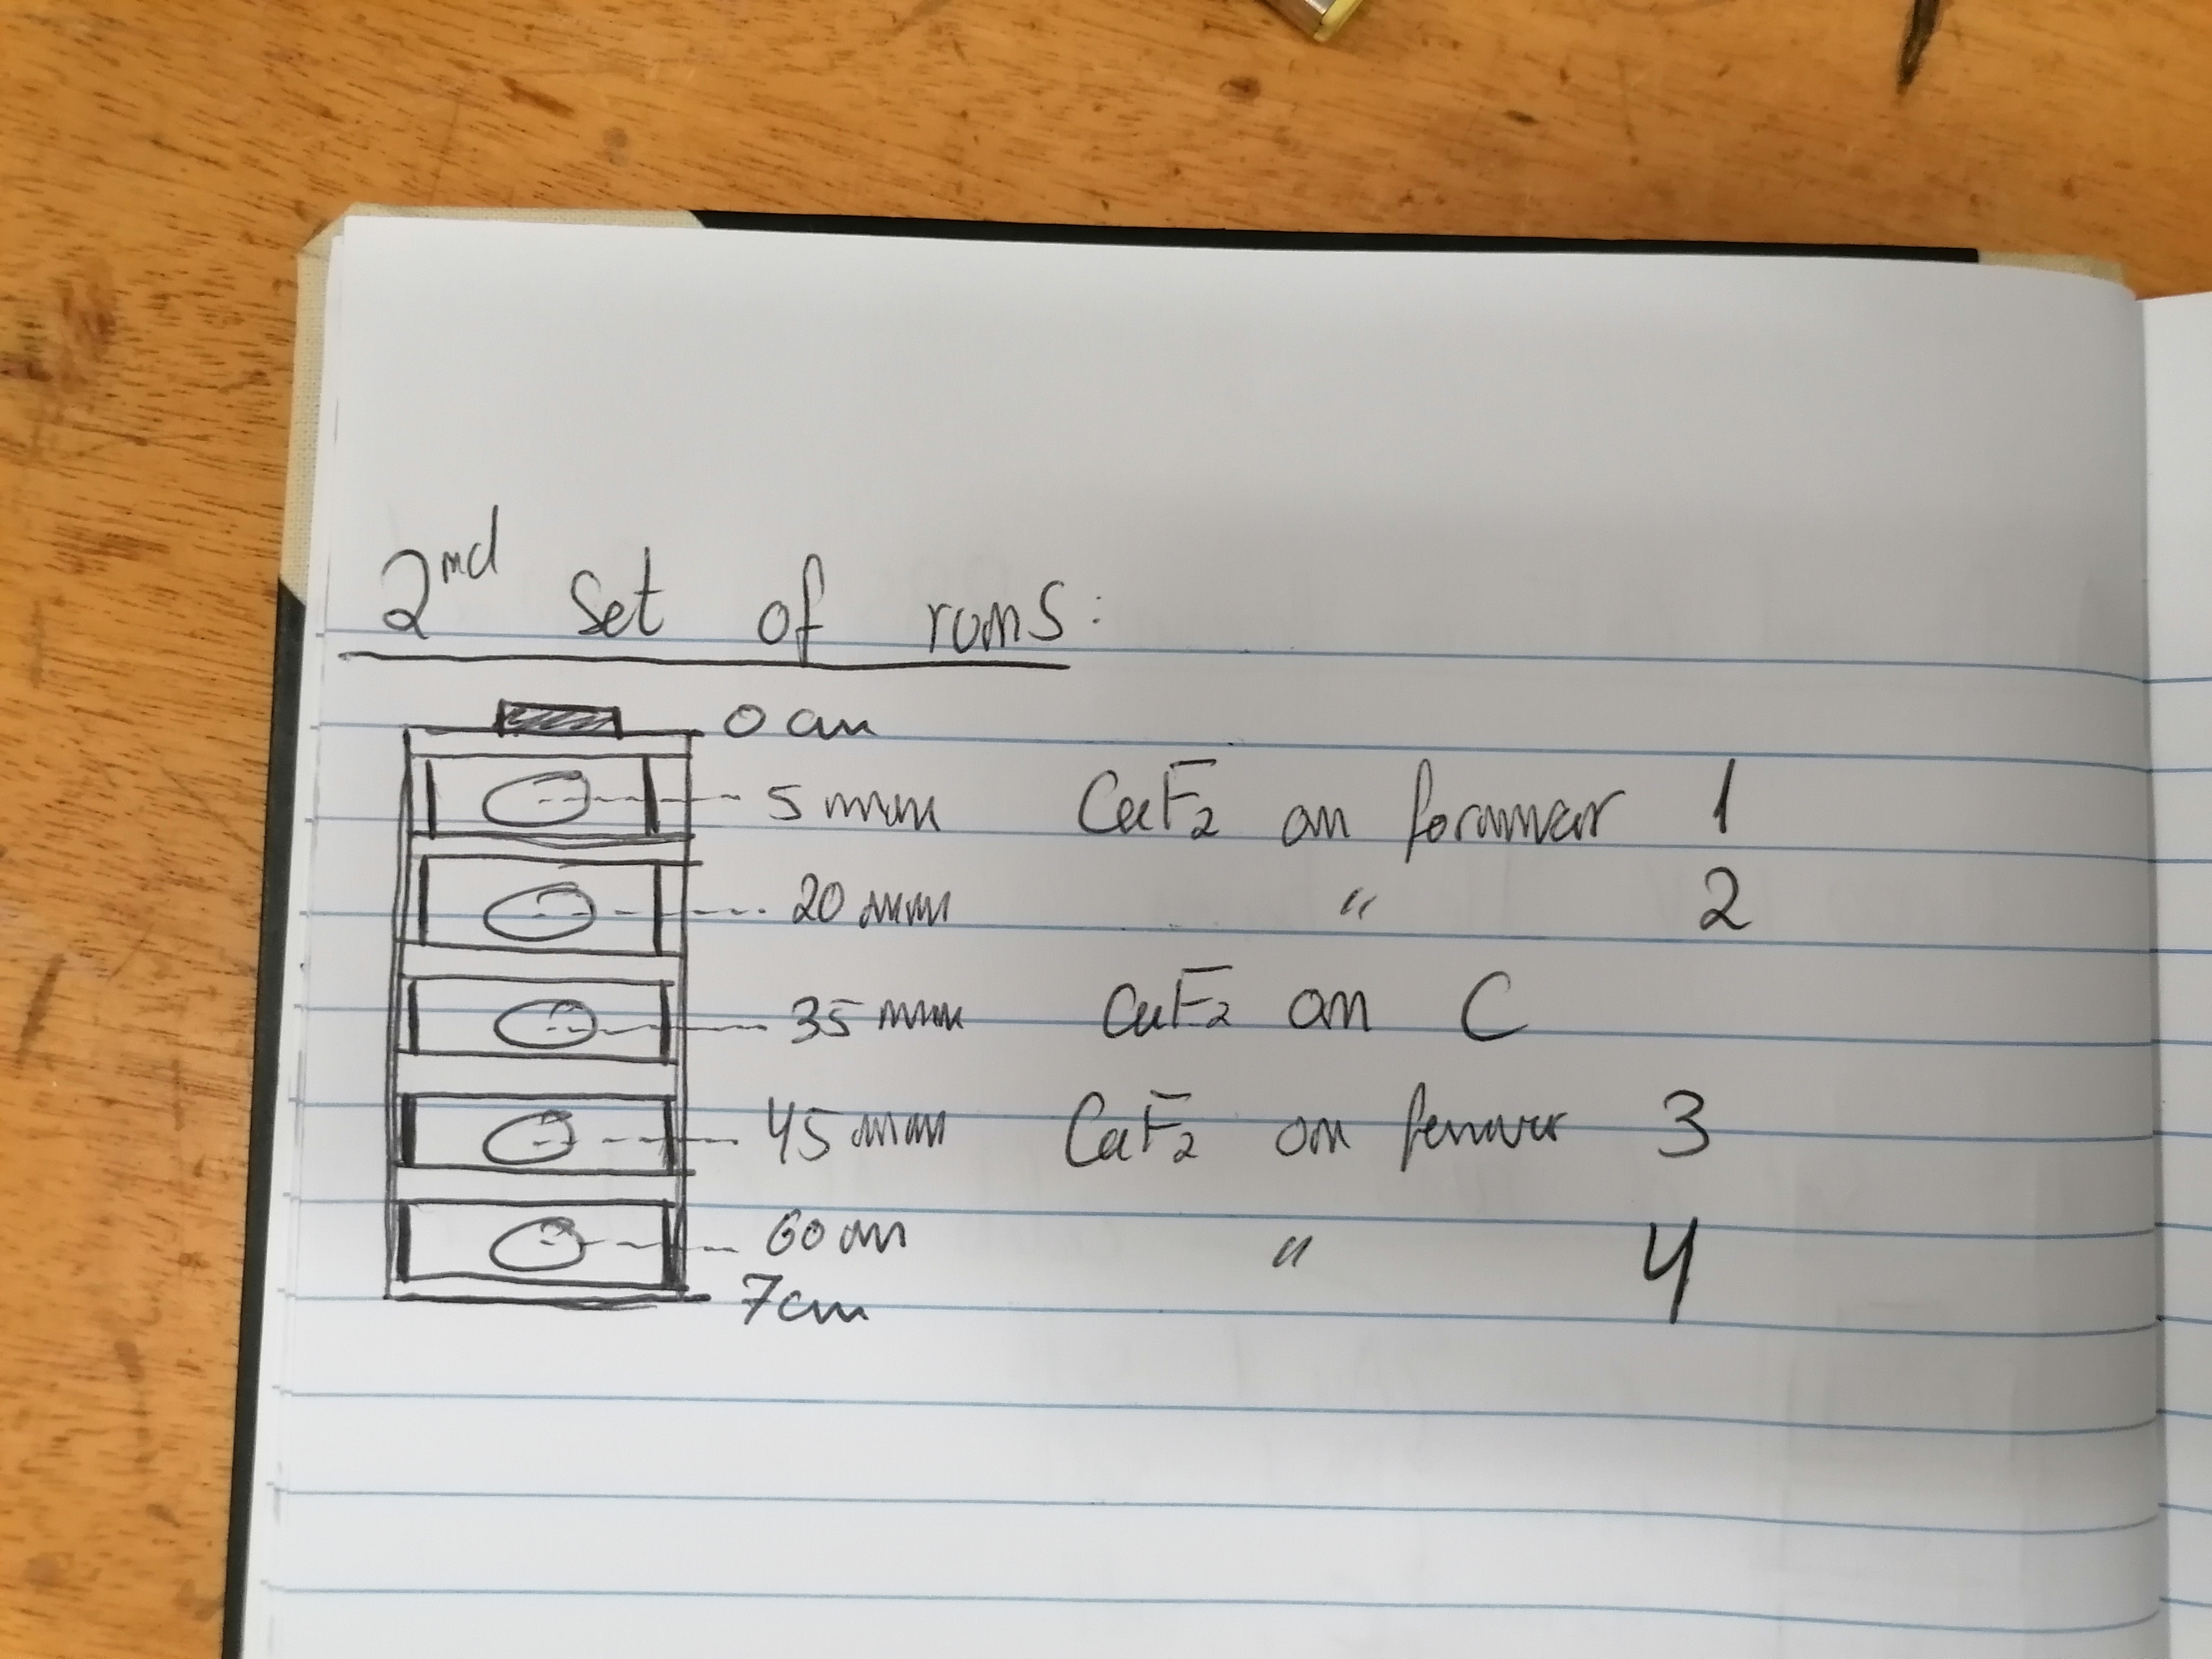 2nd set of runs:
0 cm
5 mm CaF2 on formvar 1
20 mm " 2
35 mm CaF2 on C
45 mm CaF2 on formvar 3
60 cm " 4
7cm